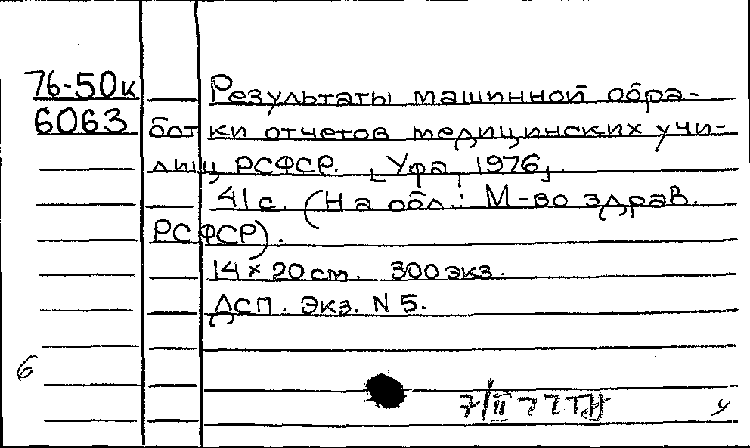 76-50к
6063
Результаты машинной обра-
ботки отчетов медицинских учи-
лищ РСФСР. [Уфа, 1976].
41 с. (На обл.: М-во здрав.
РСФСР).
14 × 20 см. 300 экз.
ДСП. Экз. N 5.
6
7/II 77
у